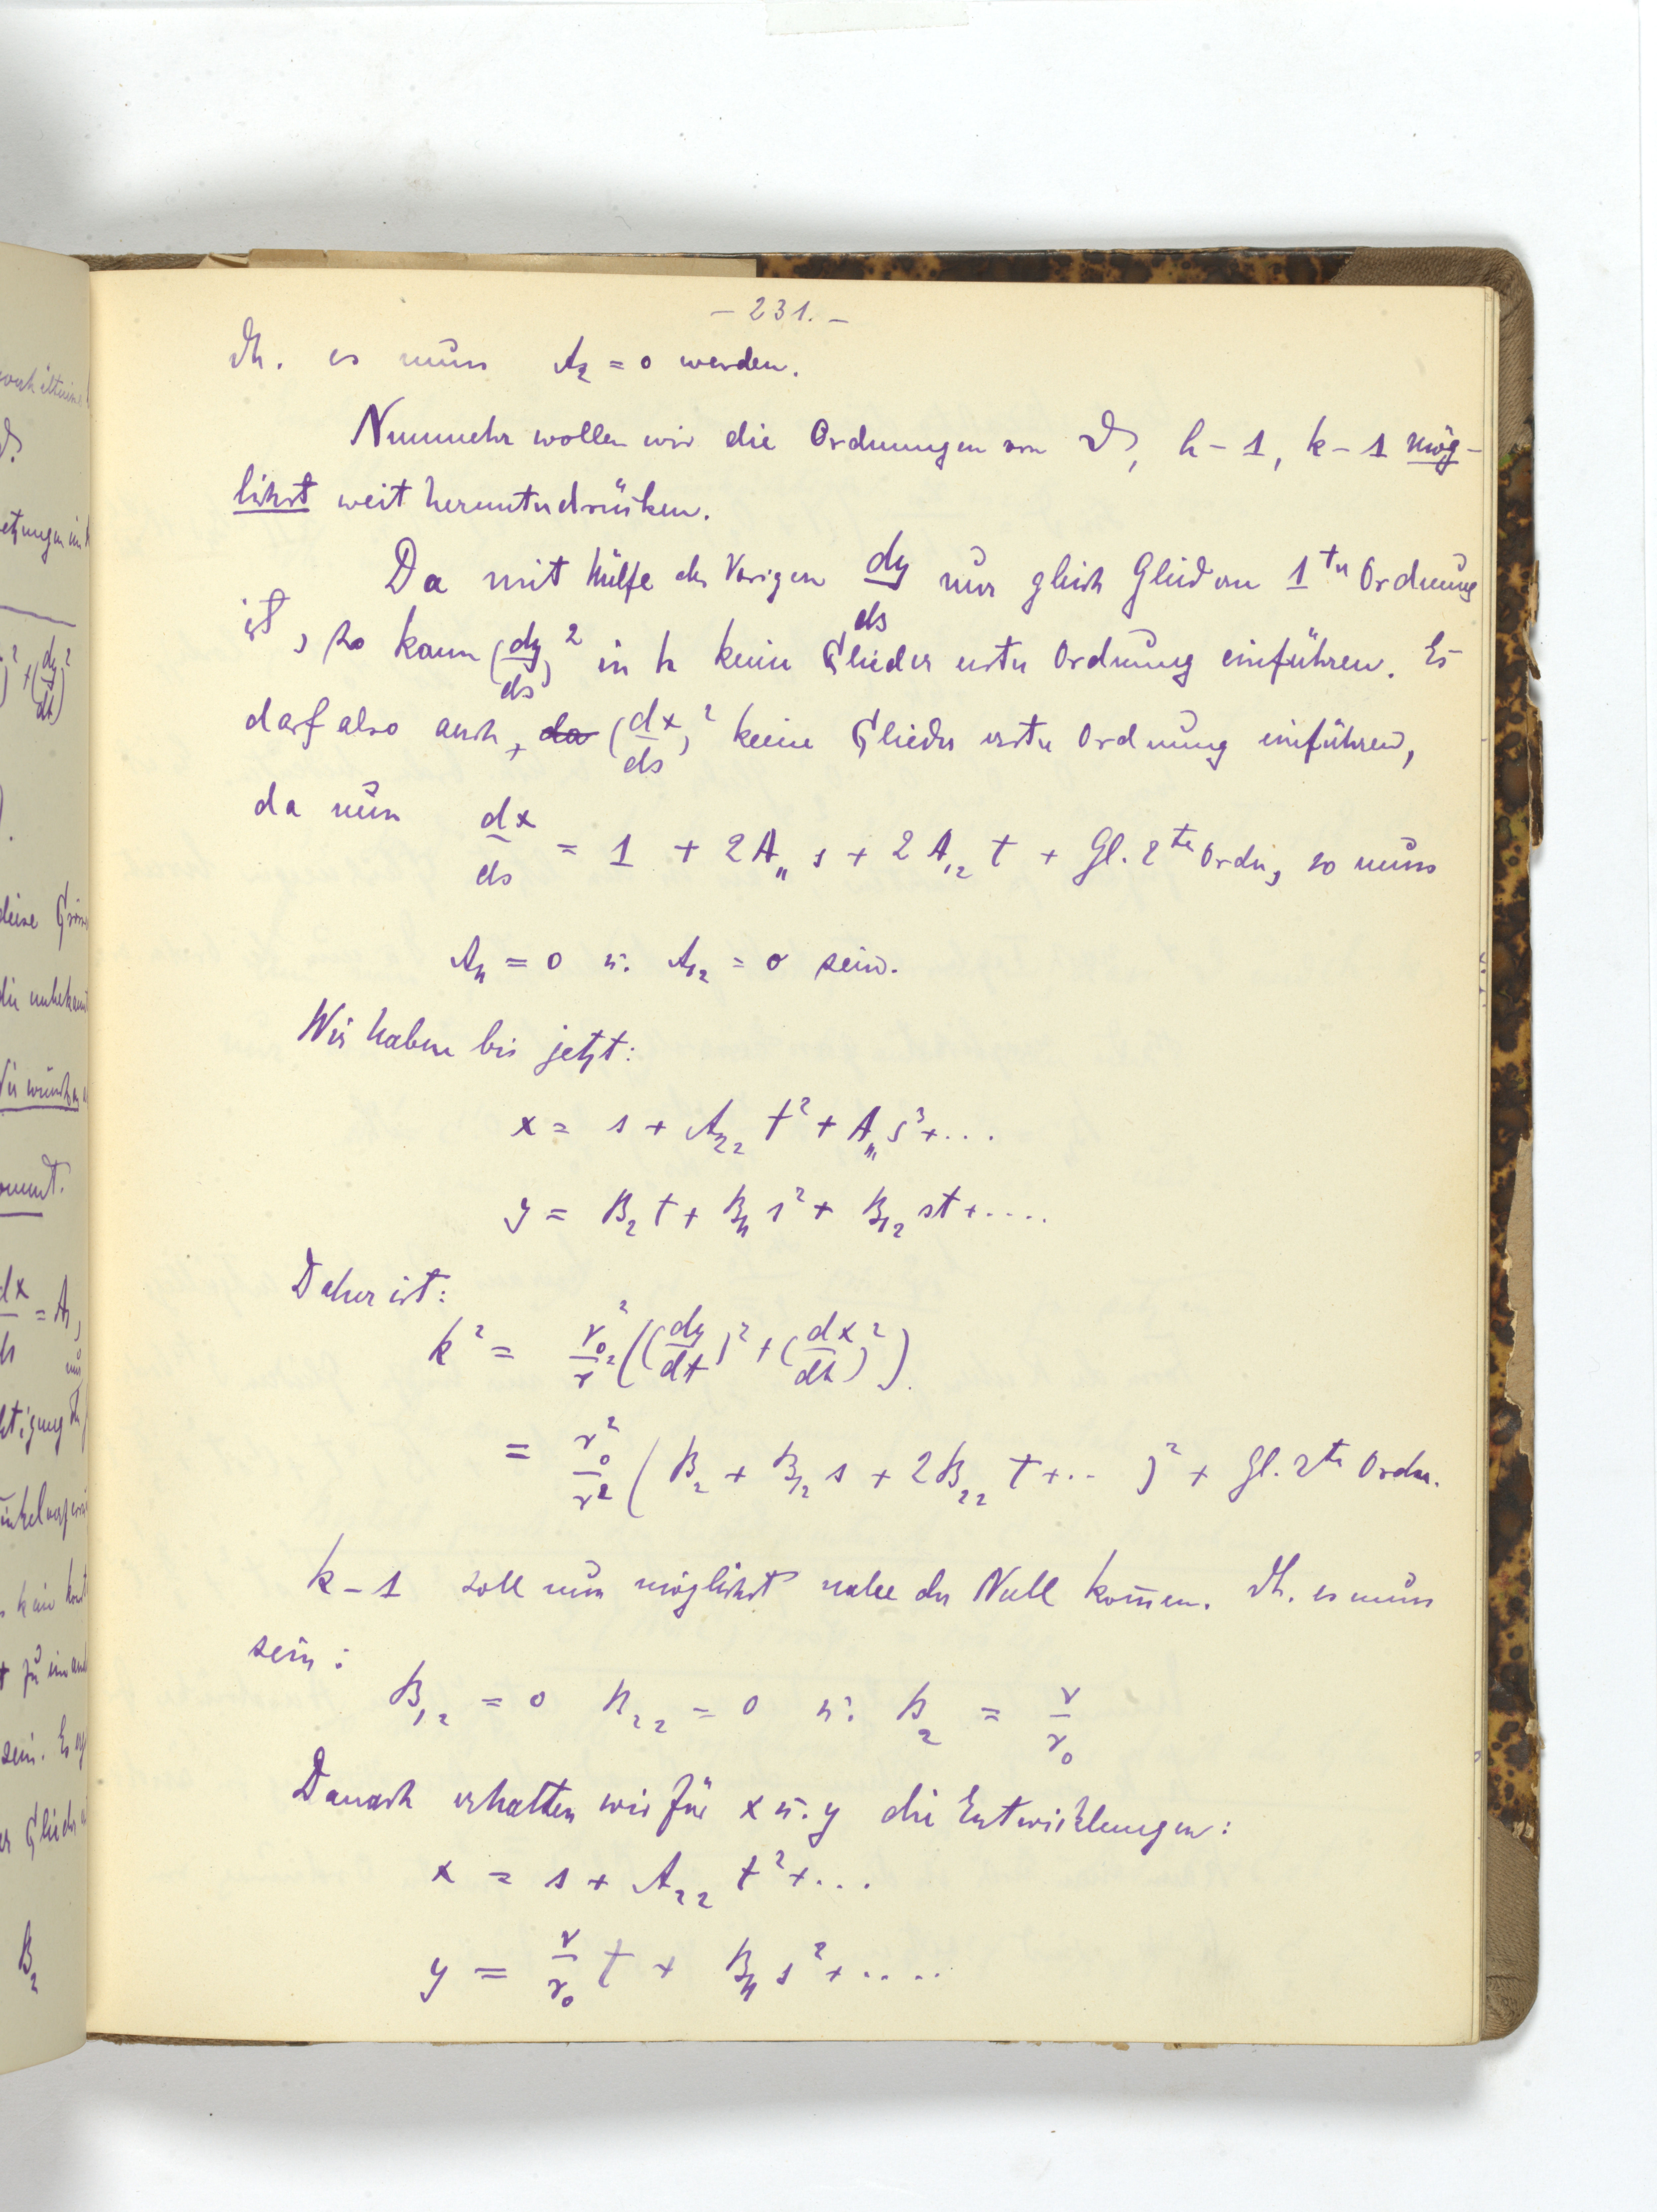 – 231. –
dh. es muss A₂ = 0 werden.
Nunmehr wollen wir die Ordnungen von ϑ, h – 1, k – 1 mög-
lichst weit herunterdrücken.
Da mit Hülfe des Vorigen dy/ds nur gleich Gliedern 1ter Ordnung
ist, so kann (dy/ds)² in h keine Glieder erster Ordnung einführen. Es
darf also auch, da (dx/ds)² keine Glieder erster Ordnung einführen,
da nun dx/ds = 1 + 2A₁₁ s + 2A₁₂ t + Gl. 2ter Ordn., so muss
A₁₁ = 0 u. A₁₂ = 0 sein.
Wir haben bis jetzt:
x = s + A₂₂ t² + A₁₁₁ s³ + ...
y = B₂ t + B₁₁ s² + B₁₂ st + ....
Daher ist:
k² = r₀²/r² ((dy/dt)² + (dx/dt)²).
= r₀²/r² (B₂ + B₁₂ s + 2B₂₂ t + .. )² + Gl. 2ter Ordn.
k – 1 soll nun möglichst nahe der Null kom̄en. dh. es muss
sein:
B₁₂ = 0 B₂₂ = 0 u. B₂ = r/r₀
Danach erhalten wir für x u. y die Entwicklungen:
x = s + A₂₂ t² + ...
y = r/r₀ t + B₁₁ s² + ....